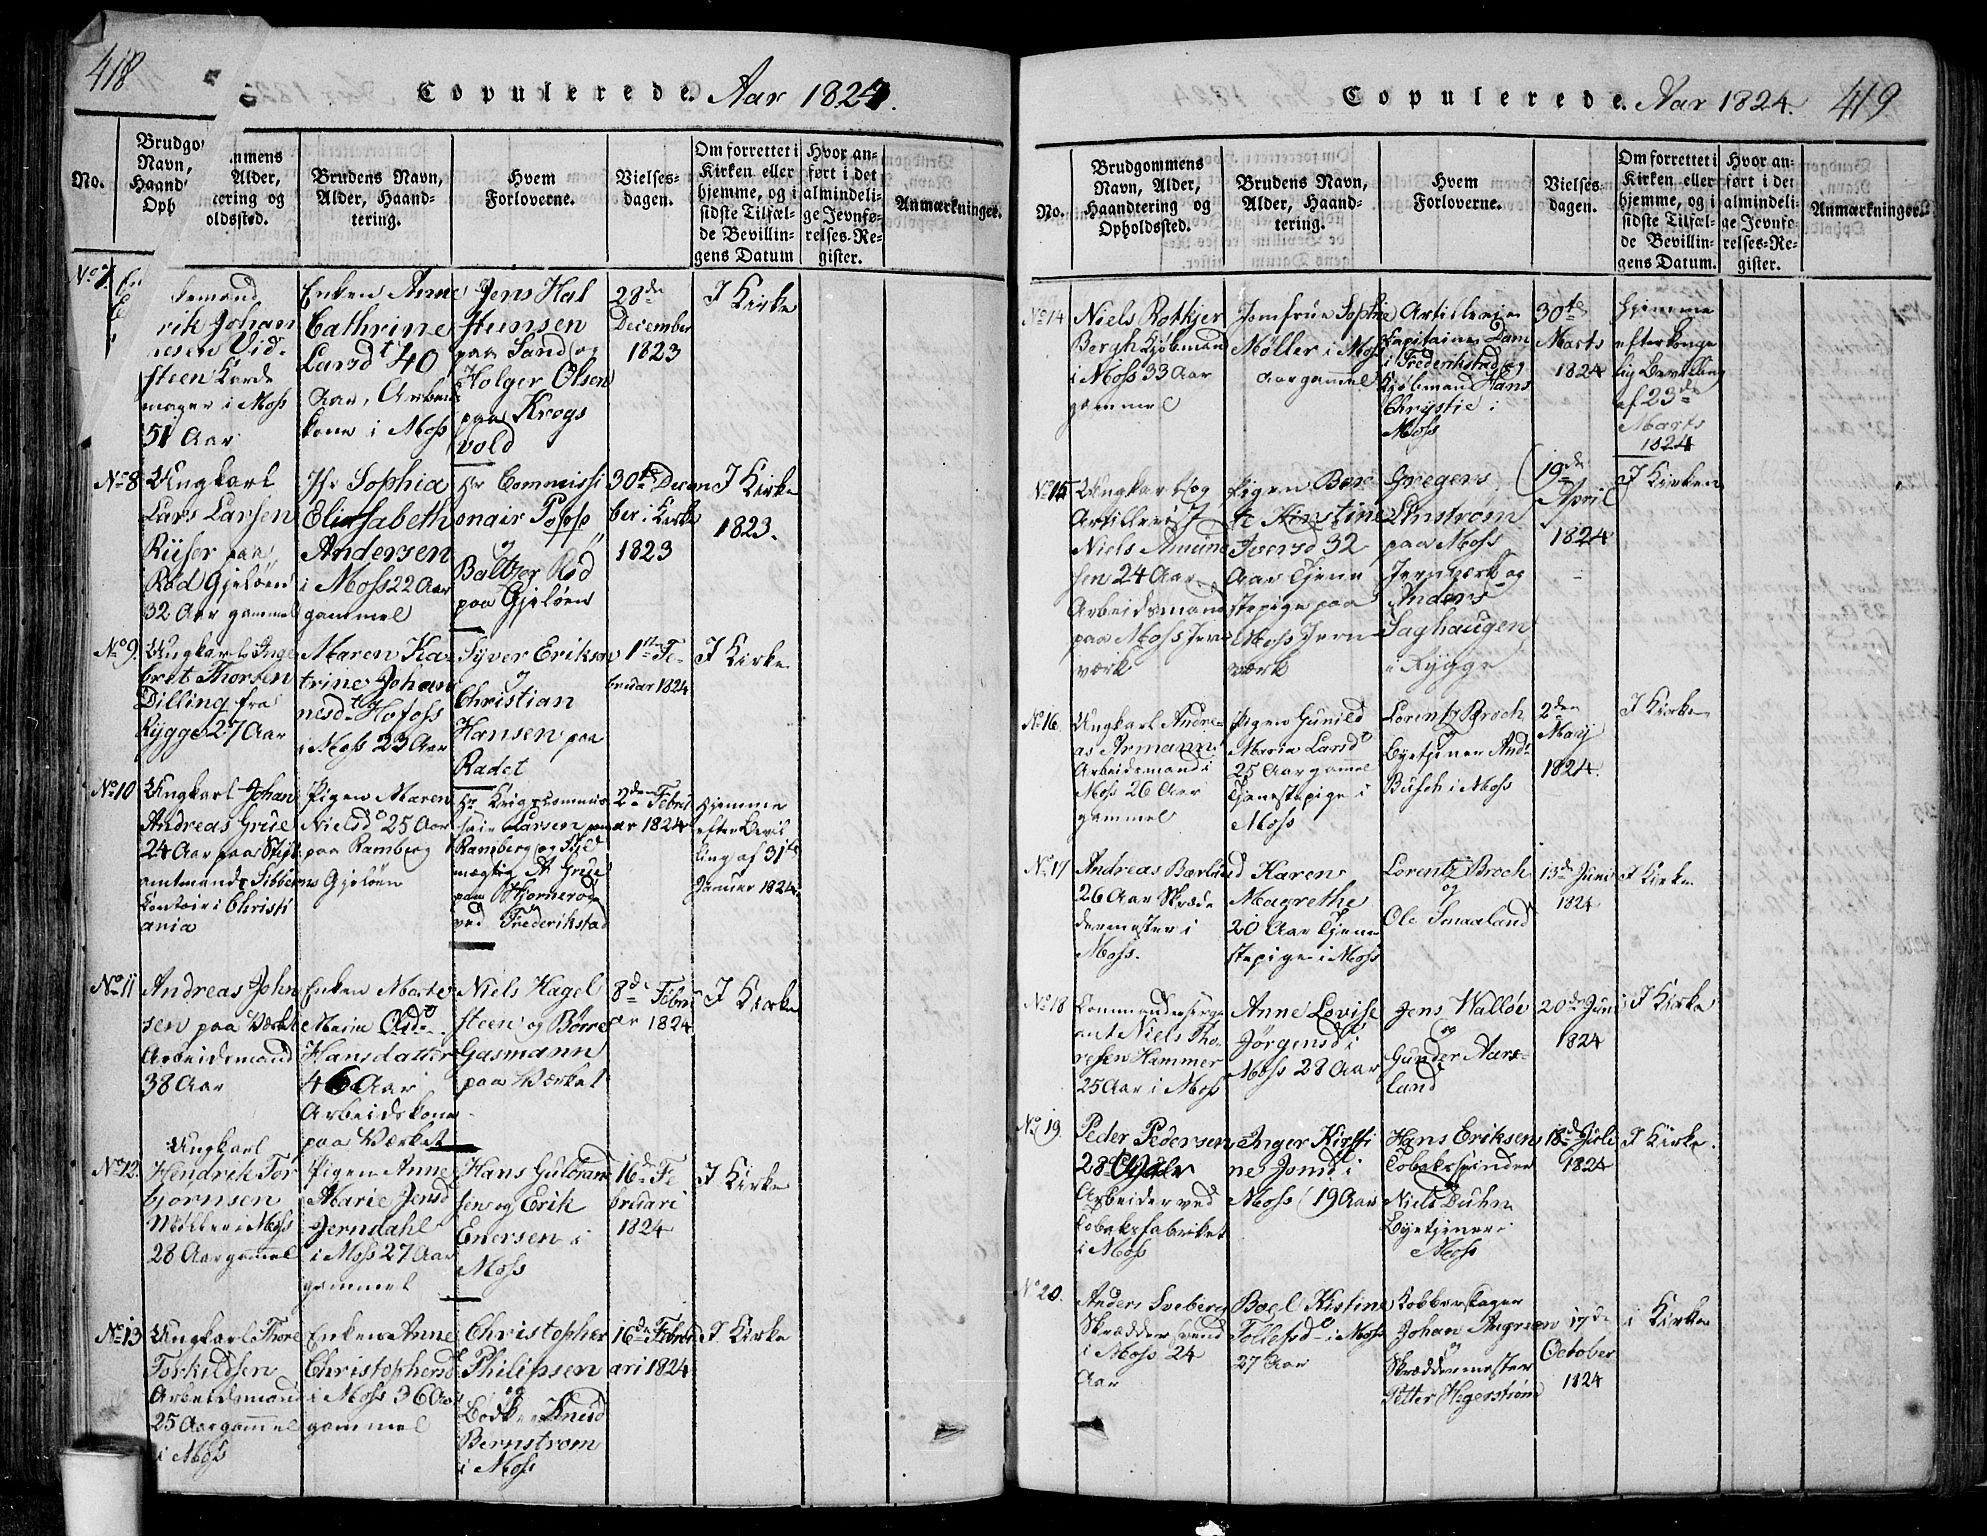 418
Copulerede. Aar 1824.
No.
Brudgo
Navn,
Haand
Oph
mmens
Alder,
tering og
oldssted.
Brudens Navn,
Alder, Haand-
tering.
Hvem
Forloverne.
Vielses-
dagen.
Om forrettet i
Kirken eller
hjemme, og i
sidste Tilfæl-
de Bevillin-
gens Datum
Hvor an-
ført i det
almindeli-
ge Jevnfø-
relses-Re-
gister.
Anmærkninger.
No 7
kemand
rik Johan
nesen Vid-
steen Karde
mager i Moss
51 Aar
Enken Anne
Cathrine
Larsdt 40
Aar, Arbeids
kone i Moss
Jens Hal
Hansen
paa Sand og
Holger Olsen
paa Krogs
vold
28de
December
1823
I Kirke
No 8
Ungkarl
Lars Larsen
Ryfer paa
Rød Gjeløen
32 Aar gammel
Jfr Sophia
Elisabeth
Andersen
i Moss 22 Aar
gammel
Hr Commissi
onair Poppe
og
Balther Rød
paa Gjeløen
30te Decem
ber i Kirke
1823
I Kirke
1823.
No 9.
Ungkarl Inge
bret Thorsen
Dilling fra
Rygge 27 Aar
Maren Ka-
trine Johan
nesdt Hofoss
i Moss 23 Aar
Syver Eriksen
og
Christian
Hansen paa
Radet
1ste Fe-
bruar 1824
I Kirke
No 10
Ungkarl Johan
Andreas Grüe
24 Aar paa Stift
amtmand Sibberns
Contoir i Christi
ania
Pigen Maren
Nielsd 25 Aar
paa Ramberg
Gjeløen
Hr Krigscommis
sair Larsen paa
Ramberg og
mægtig A Grüe
paa
ved Frederikstad
2den Febru
ar 1824
Hjemme
efter Bevil
ling af 31te
Januar 1824.
No 11
Andreas John
sen paa Værket
Arbeidsmand
38 Aar
Enken Marte
Maria Olsd
Hansdatter
46 Aar
Arbeidskone
paa Værket
Niels Hagel
steen og Børre
Gasmann
paa Værket
8de Febru
ar 1824
I Kirke
No 12.
Ungkarl
Hendrik Tor
bjørnsen
Møller i Moss
28 Aar gammel
Pigen Anne
Marie Jensd
Jerndahl
i Moss 27 Aar
gammel
Hans Guldbrand
sen og Erik
Enersen i
Moss
16de Fe
bruari
1824
I Kirke
No 13
Ungkarl Thore
Torkildsen
Arbeidsmand
25 Aar gammel
i Moss
Enken Anne
Christophersd
i Moss 36 Aar
gammel
Christopher
Philipsen
og
Bødker Knud
Bernstrom
i Moss
16de Febru
ari 1824
I Kirke
Copulerede. Aar 1824.
419
No.
Brudgommens
Navn, Alder,
Haandtering og
Opholdssted.
Brudens Navn,
Alder, Haand-
tering.
Hvem
Forloverne.
Vielses-
dagen.
Om forrettet i
Kirken eller
hjemme, og i
sidste Tilfæl-
de Bevillin-
gens Datum.
Hvor an-
ført i det
almindeli-
ge Jevnfø-
relses-Re-
gister.
Anmærkninger.
No 14
Niels Rotkjer
Borgh Kjøbmand
i Moss 33 Aar
gammel
Jomfrue Sophie
Møller i Moss
Aar gammel
Artillerie
Capitaine Dam
i Frederikstad og
Kjøbmand Hans
Chrystie i
Moss
30te
Marts
1824
Hjemme
efter konge
lig Bevilling
af 23de
Marts
1824
No 15
Ungkarl og
Artillerist
Niels Amund
sen 24 Aar
Arbeidsmand
paa Moss Jern
værk
Pigen Bere
te Kirstine
Iversd 32
Aar Tjene
stepige paa
Moss Jern
værk
Gregers
Linstrøm
paa Moss
Jernværk og
Anders
Saghaugen
i Rygge
19de
April
1824
I Kirken
No 16
Ungkarl Andre-
as Armann
Arbeidsmand i
Moss 26 Aar
gammel
Pigen Gunild
Maria Larsd
25 Aar gammel
Tjenestepige i
Moss
Lorentz Broch
og
Byetjener And.
Busch i Moss
2den
May
1824.
I Kirke
No 17
Andreas Bærlund
26 Aar Skræd
dermester i
Moss.
Karen
Magrethe
20 Aar Tjene
stepige i Moss
Lorentz Broch
og
Ole Smaaland
13de Juni
1824
I Kirke
No 18
Commandersierge
ant Niels Tho-
resen Hammer
25 Aar i Moss
Anne Lovise
Jørgensd i
Moss 28 Aar
Jens Walløe
og
Gunder Aars-
land
20de Juni
1824
I Kirke
No 19.
Peder Pedersen
28 Aar
Arbeider ved
Tobaksfabriket
i Moss
Inger Kirsti
ne Jonsd i
Moss 19 Aar
Hans Eriksen
Tobakspinder
Niels Duhn
Byetjener i
Moss
18de Juli
1824
I Kirke.
No 20.
Anders Sveberg
Skrædder svend
i Moss 24
Aar
Boel Kistine
Tollefsd i Moss
27 Aar
Kobberslager
Johan Angrsen
og
Skræddermester
Petter Hegerstrøm
17de
October
1824
i Kirke